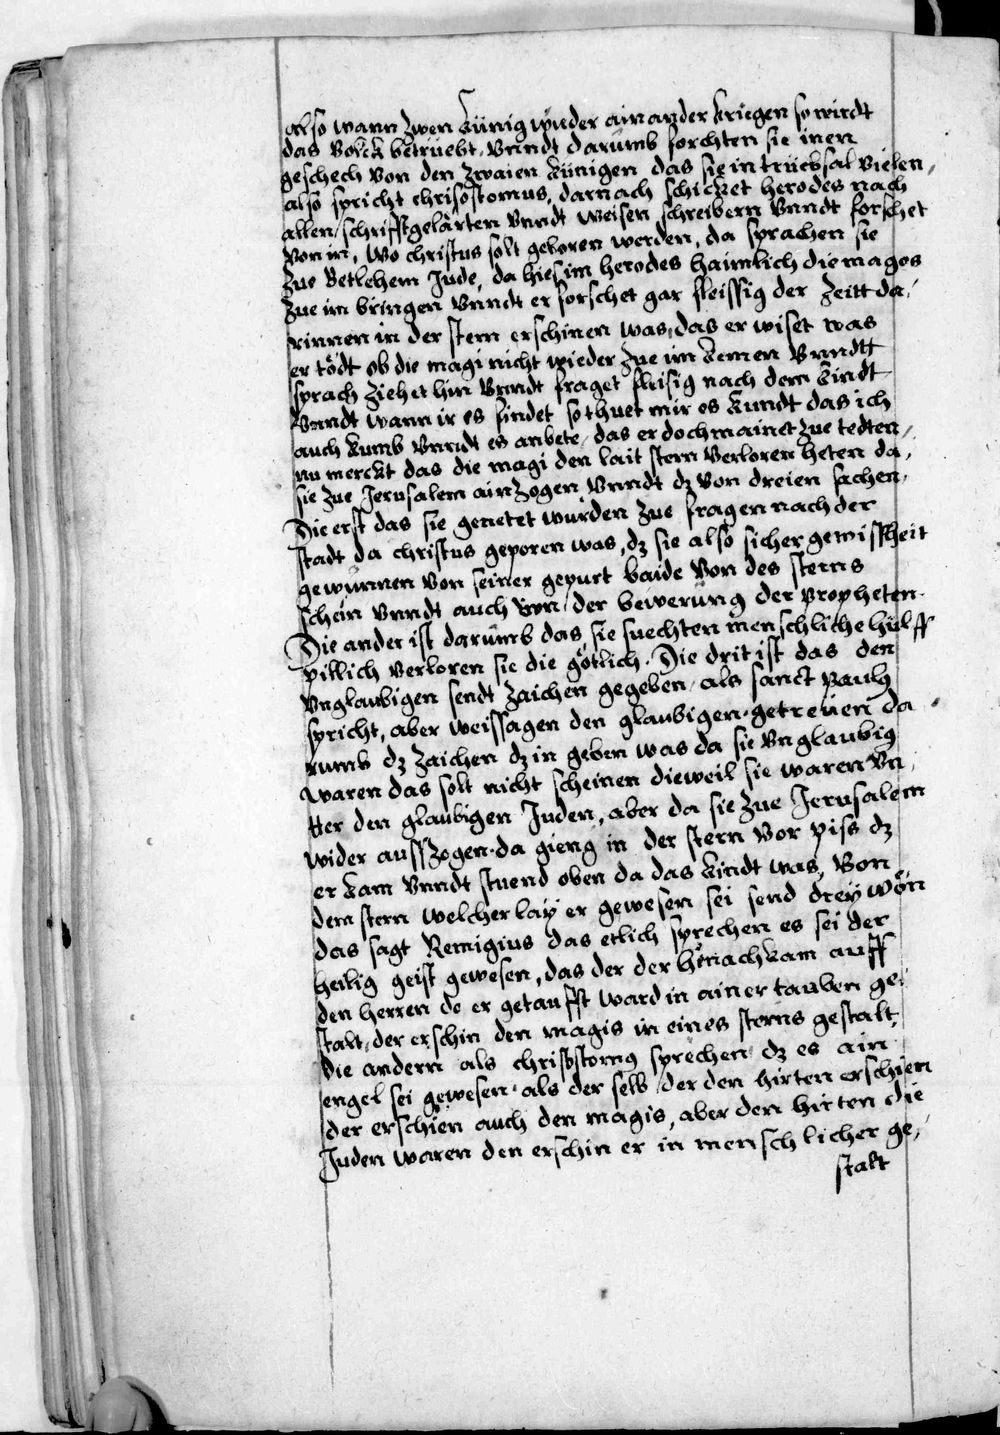 also wann zwen künig wieder ainander kriegen so wirdt
das volck betrüebt, vnndt darümb forchten sie inen
geschech von den zwaien künigen das sie in trücksal vielen,
also spricht chrisostomus, darnach schicket herodes nach
allen schrifftgelärten vnndt weisen schreibern vnndt forschet
von in, wo christus solt geboren werden, da sprachen sie
zue Betlehem Jude, da hies im herodes haimlich die magos
zue im bringen vnndt er forschet gar fleissig der zeitt da,
rinnen in der stern erschinen was, das er wiset was
er tödt ob die magi nicht wieder zue im kemen vnndtt
sprach ziehet hin vnndt fraget fleisig nach dem kindt
vnndt wann ir es findet so thuet mir es kundt das ich
auch kumb vnndt es anbete, das er doch mainet zue tedten,
nu merckt das die magi den lait stern verloren heten da,
sie zue Jerusalem ainzogen vnndt dz von dreien sachen,
Die erst das sie genetet würden zue fragen nach der
stadt da christus geporen was, dz sie also sicher gewissheit
gewünnen von seiner gepurt baide von des sterns
schein vnndt auch von der bewerüng der propheten.
Die ander ist darümb das sie suechten menschliche hülff
pillich verloren sie die götlich. Die drit ist das den
vnglaubigen sendt zaichen gegeben, als sanct paulg
spricht, aber weissagen den glaubigen getreüen da
rumb dz zaichen dz in geben was da sie vnglaubig
waren das solt nicht scheinen dieweil sie waren vn,
tter den glaubigen Juden, aber da sie zue Jerusalem
widerausszogen da gieng in der stern vor piss dz
er kam vnndt stuend oben da das kindt was, Von
dem stern welcherlay er gewesen sei send drey wön
das sagt Remigius das etlich sprechen es sei der
heilig geist gewesen, das der der hernach kam auff
den herren do er getaufft ward in ainer tauben ge,
stalt, der erschin den magis in eines sterns gestalt,
die andern als chrisostomg sprechen dz es ain
engel sei gewesen, als der selb der den hirten erschien
der erschien auch den magis, aber den hirten die
Juden waren den erschin er in menschlicher ge,
stalt